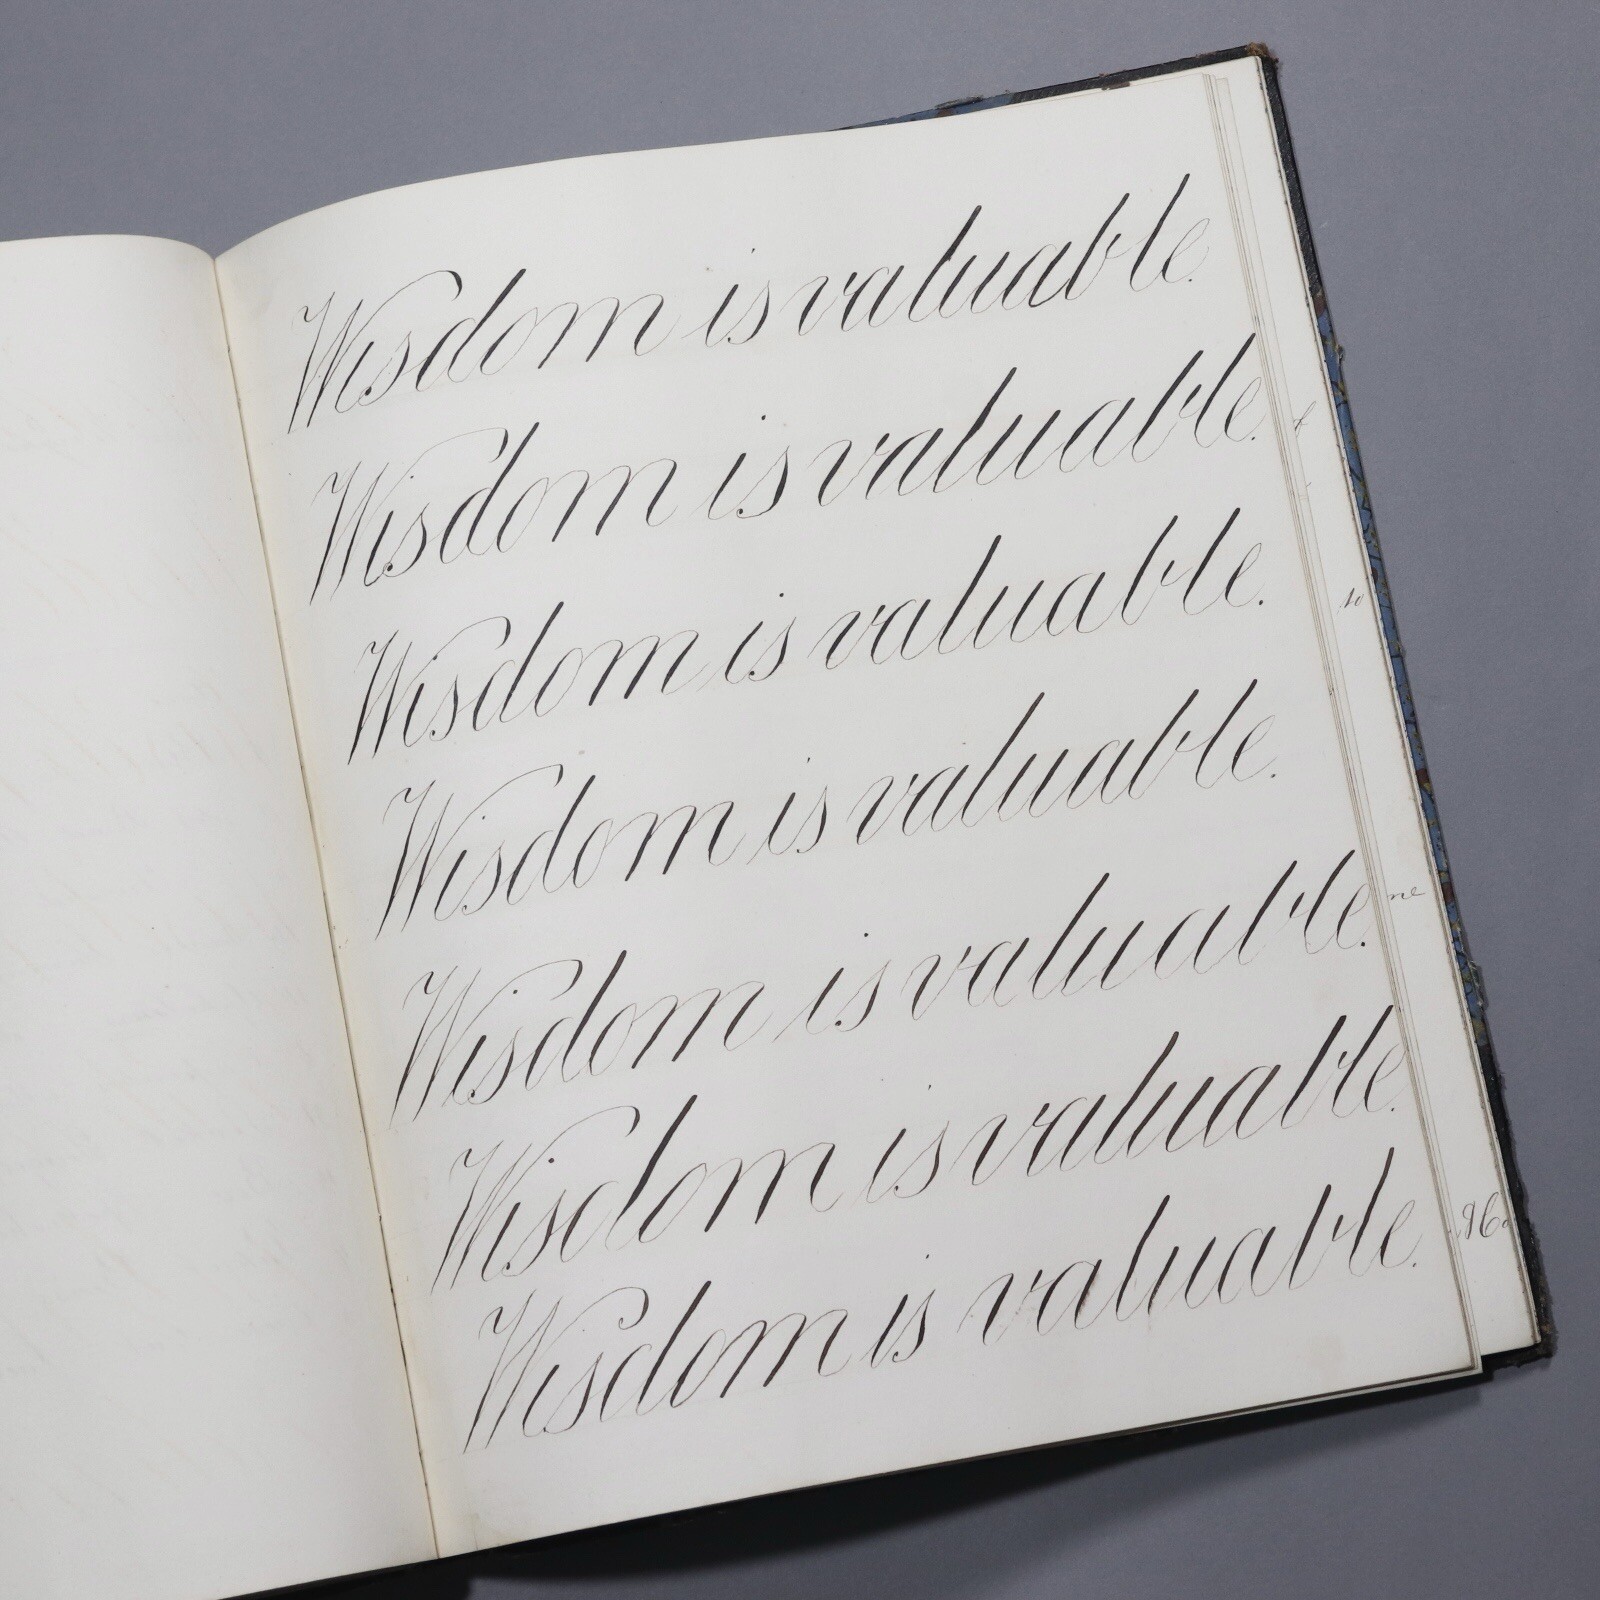 Wisdom is valuable.
Wisdom is valuable.
Wisdom is valuable.
Wisdom is valuable.
Wisdom is valuable.
Wisdom is valuable.
Wisdom is valuable.